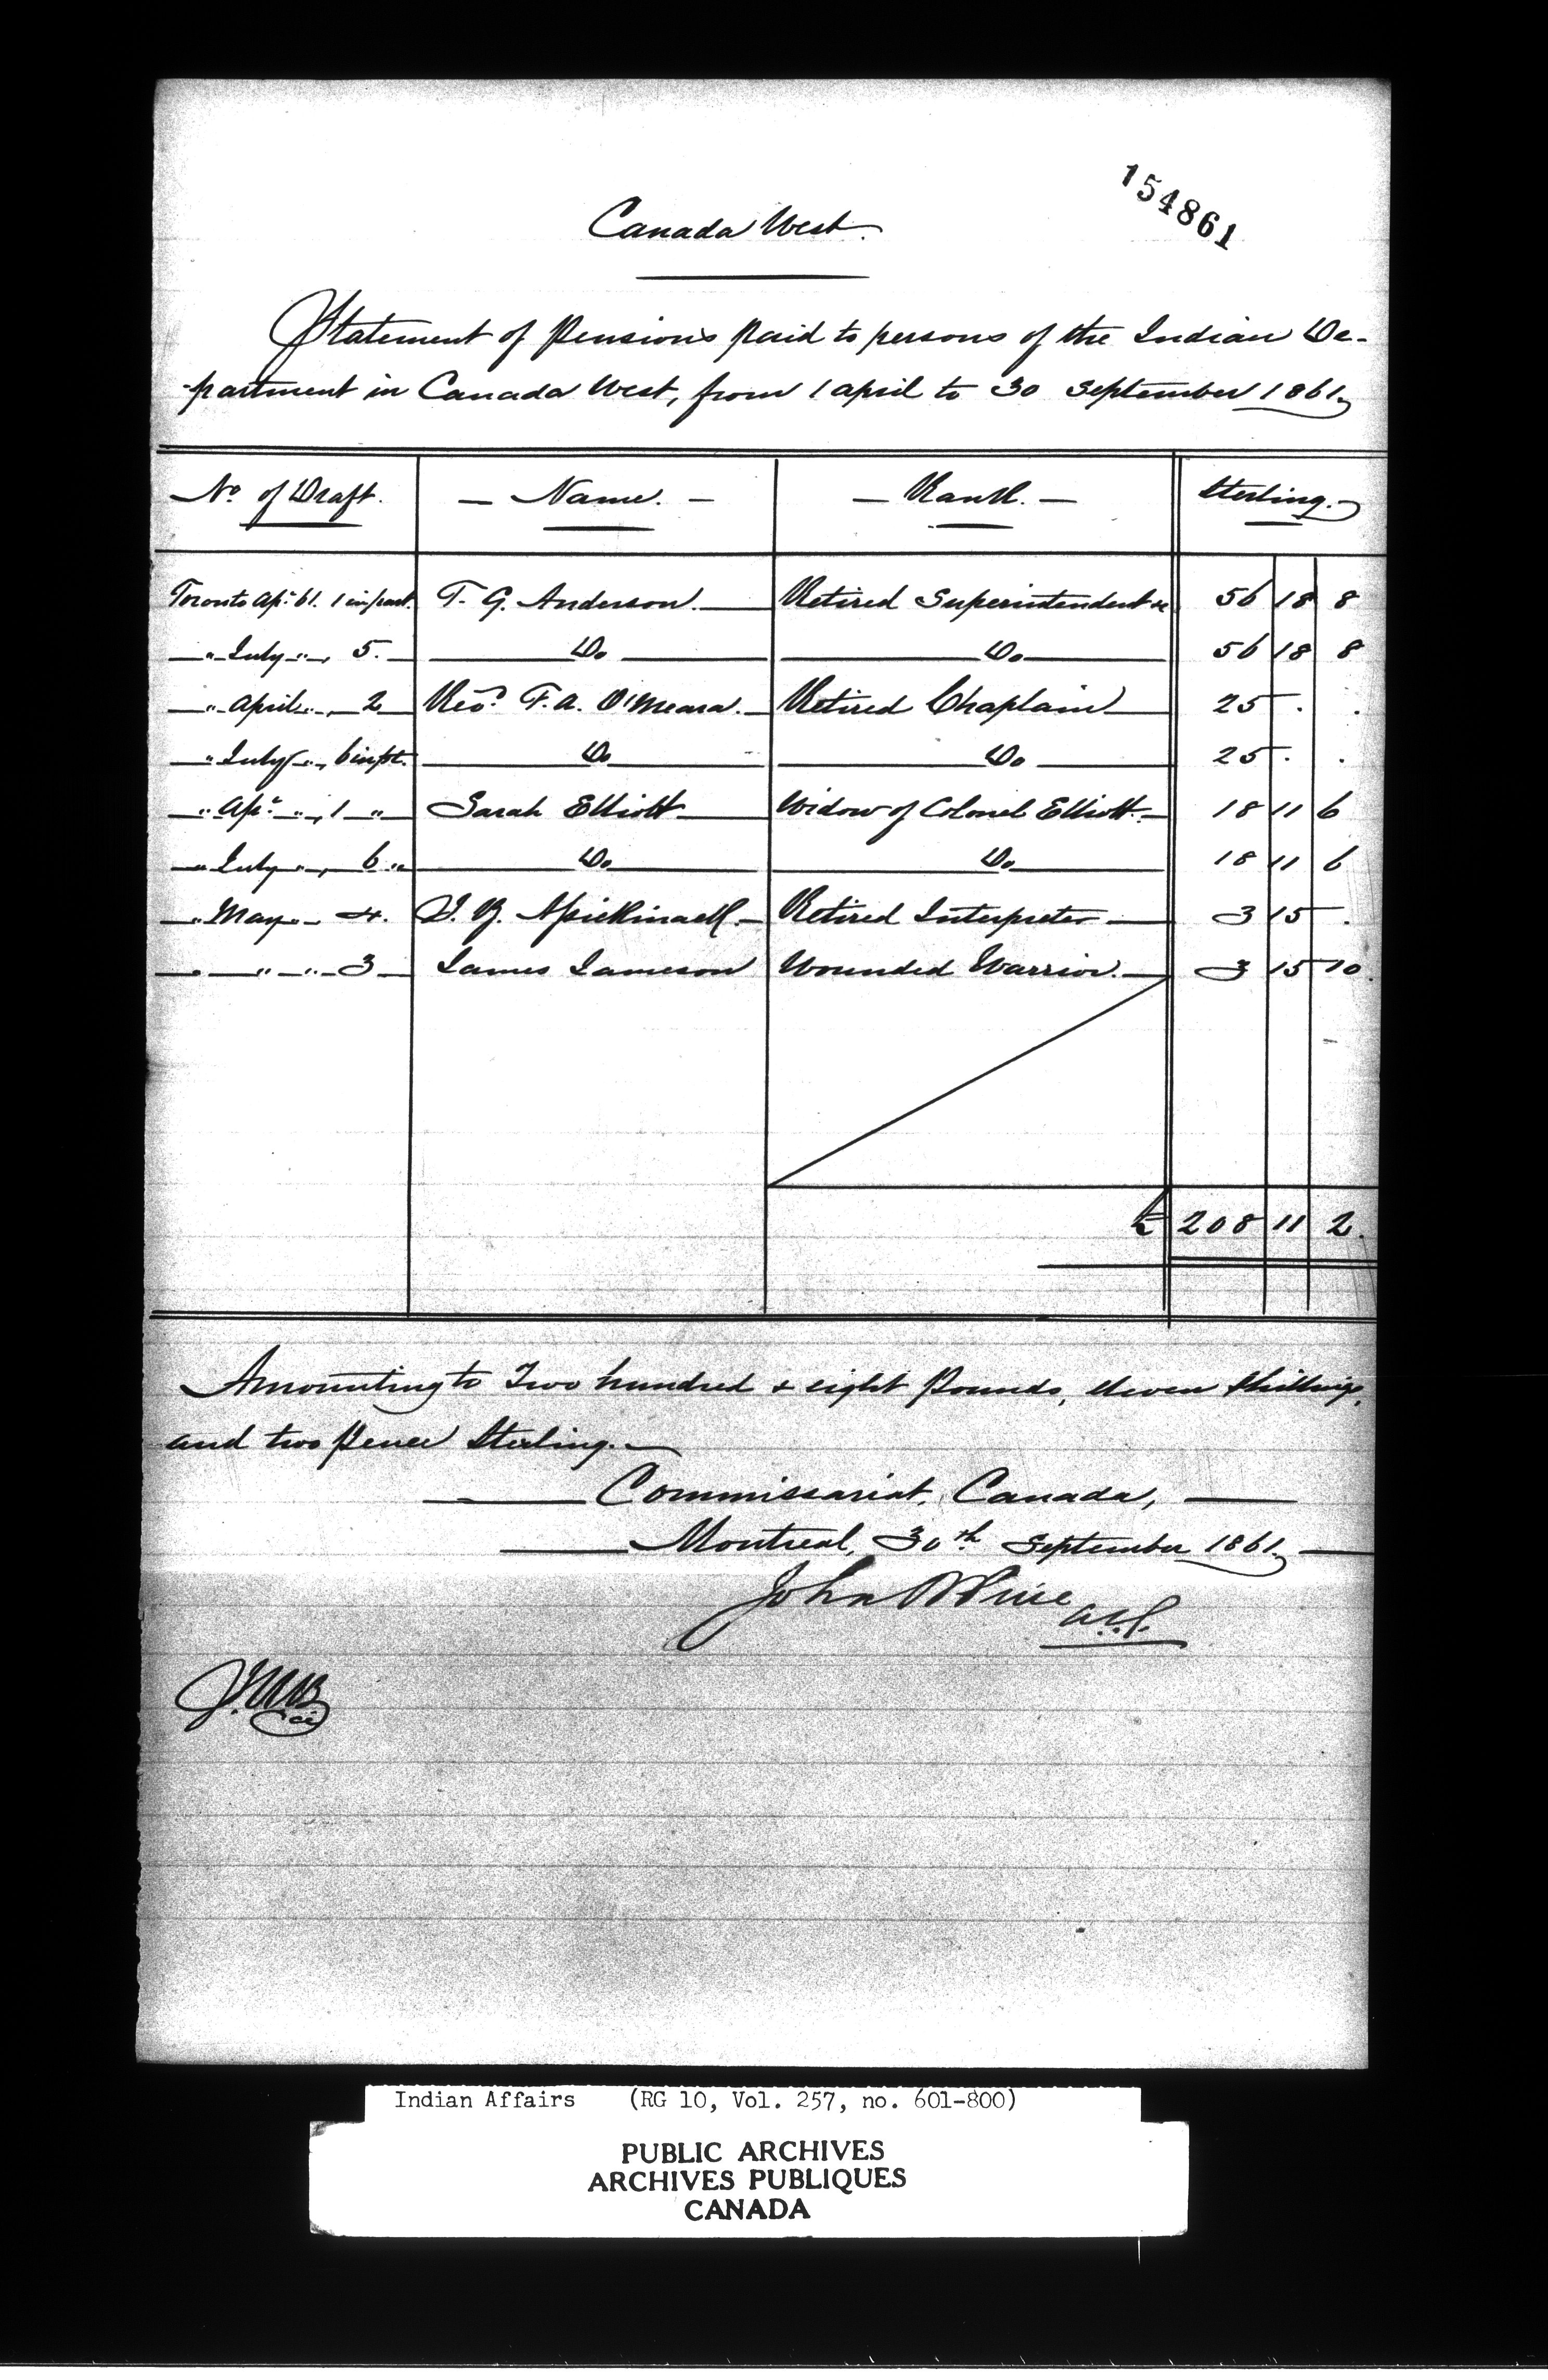 154861
Canada West.
Statement of Pensions paid to persons of the Indian De-
partment in Canada West, from 1 April to 30 September 1861.
No. of Draft. Name. Rank. Sterling.
Toronto Apl. 61. 1 in part. T. G. Anderson. Retired Superintendent &c 56 18 8
" July " , 5. Do Do 56 18 8
" April " , 2 Revd. F. A. O'Meara. Retired Chaplain 25 . .
" July " , 6 in pt. Do Do 25 . .
" Apl. " , 1 " Sarah Elliott Widow of Colonel Elliott. 18 11 6
" July " , 6 " Do Do 18 11 6
" May " 4. Retired Interpreter 3 15 .
" " " 3 James Jameson Wounded Warrior. 3 15 10.
£ 208 11 2.
Amounting to Two hundred & eight Pounds, eleven Shillings,
and two pence Sterling.
Commissariat, Canada,
Montreal, 30th September 1861.
John
Indian Affairs (RG 10, Vol. 257, no. 601-800)
PUBLIC ARCHIVES
ARCHIVES PUBLIQUES
CANADA